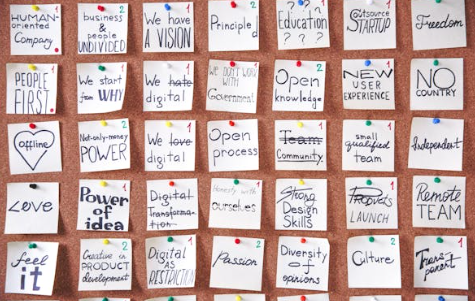 HUMAN-
oriented
Company
1
business
&
people
UNDIVIDED
2
We have
A VISION
1
Principle
2
Education
? ? ?
1
Outsource
STARTUP
1
Freedom
PEOPLE
FIRST
1
We start
from WHY
1
We hate
digital
1
WE DON'T WORK
WITH
Government
2
Open
knowledge
2
NEW
USER
EXPERIENCE
NO
COUNTRY
offline
Not-only-money
POWER
2
We love
digital
1
Open
process
1
Team
Community
1
small
qualified
team
2
Independent
Love
Power of
idea
1
Digital
Transforma-
tion
1
Honesty with
ourselves
Strong
Design
Skills
LAUNCH
1
Remote
TEAM
1
feel
it
Creative in
PRODUCT
development
2
Digital
AS
RESTRICTION
1
Passion
2
Diversity
of
opinions
2
Culture
Trans
parent
1